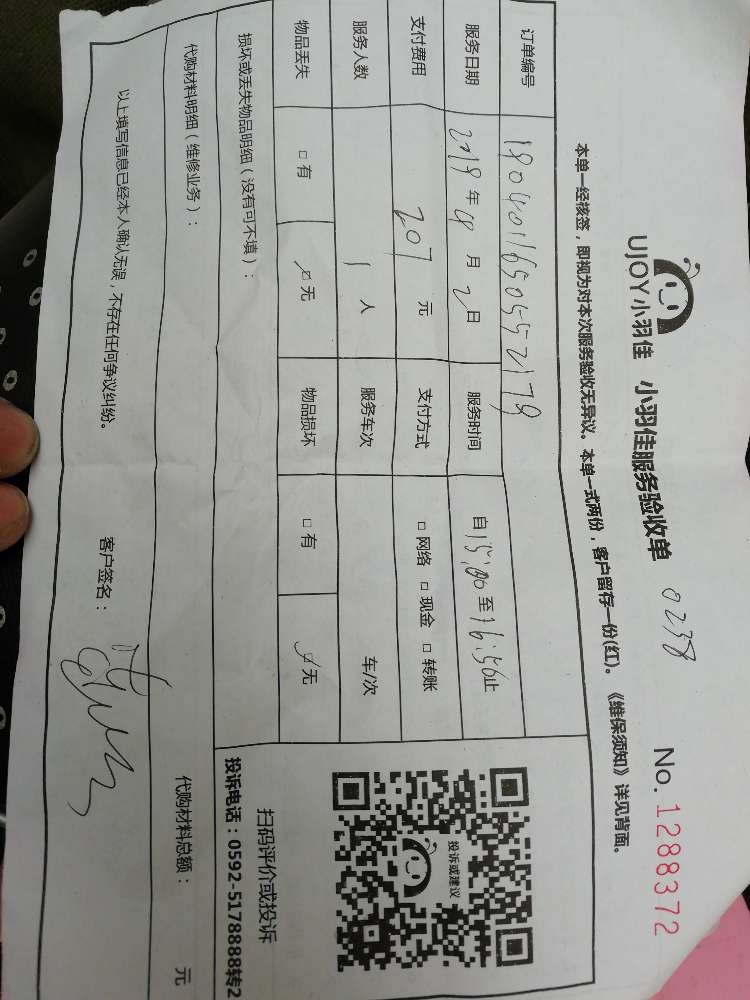 UJOY小羽佳 小羽佳服务验收单 0238 No.1288372
本单一经核签，即视为对本次服务验收无异议。本单一式两份，客户留存一份(红)。《维保须知》详见背面。
订单编号 18040116505552179
服务日期 2019年4月2日 服务时间 自15:00至16:56止
支付费用 207元 支付方式 □网络 □现金 □转账
服务人数 1人 服务车次 车/次
物品丢失 □有 ☑无 物品损坏 □有 ☑无
损坏或丢失物品明细（没有可不填）：
投诉或建议
扫码评价或投诉
投诉电话：0592-5178888转2
代购材料明细（维修业务）： 代购材料总额： 元
以上填写信息已经本人确认无误，不存在任何争议纠纷。 客户签名：